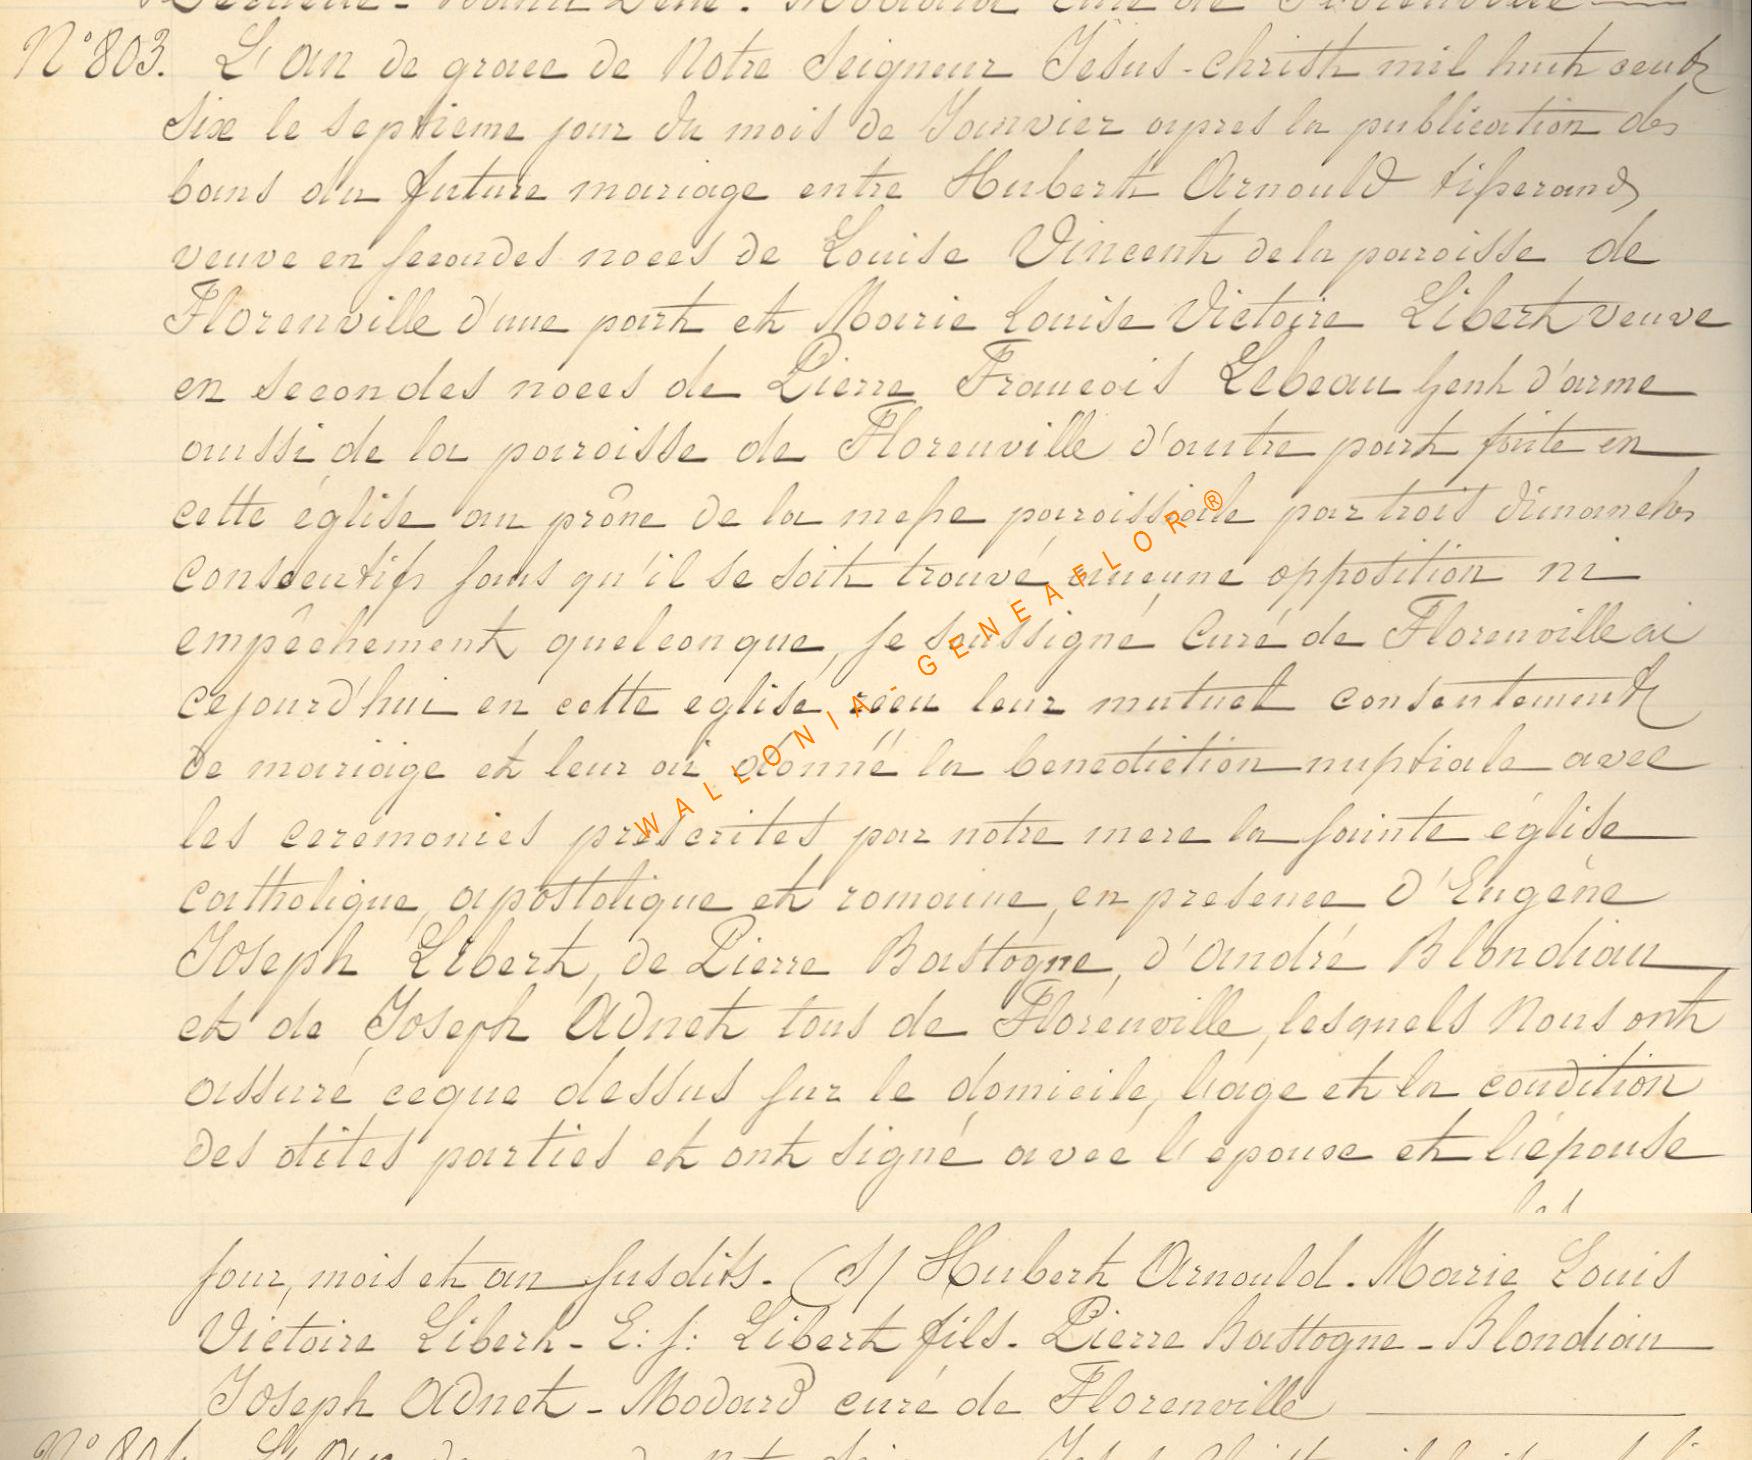 N° 803. L'an de grace de Notre Seigneur Jésus-Christ mil huit cent
six le septieme jour du mois de Janvier apres la publication des
bans du future mariage entre Hubert Arnould tisserand
veuve en secondes noces de Louise Vincent de la paroisse de
Florenville d'une part et Marie Louise Victoire Libert veuve
en secondes noces de Pierre Francois Lebeau Gent d'arme
aussi de la paroisse de Florenville d'autre part faite en
cette église au prône de la messe paroissiale par trois dimanches
consecutifs sans qu'il se soit trouvé aucune opposition ni
empêchement quelconque, je soussigné Curé de Florenville ai
cejourd'hui en cette eglise réçu leur mutuel consentement
de mariage et leur ai donné la benediction nuptiale avec
les ceremonies prescrites par notre mere la sainte église
catholique, apostolique et romaine, en presence d'Eugène
Joseph Libert, de Pierre Bastogne, d'André Blondiau
et de Joseph Adnet tous de Florenville, lesquels Nous ont
assuré ceque dessus sur le domicile, l'age et la condition
des dites parties et ont signé avec l'epoux et l'épouse
les
jour, mois et an susdits. (S/ Hubert Arnould. Marie Louis
Victoire Libert - E: j: Libert fils. Pierre Bastogne - Blondiau
Joseph Adnet - Modard curé de Florenville
WALLONIA-GENEAFLOR®